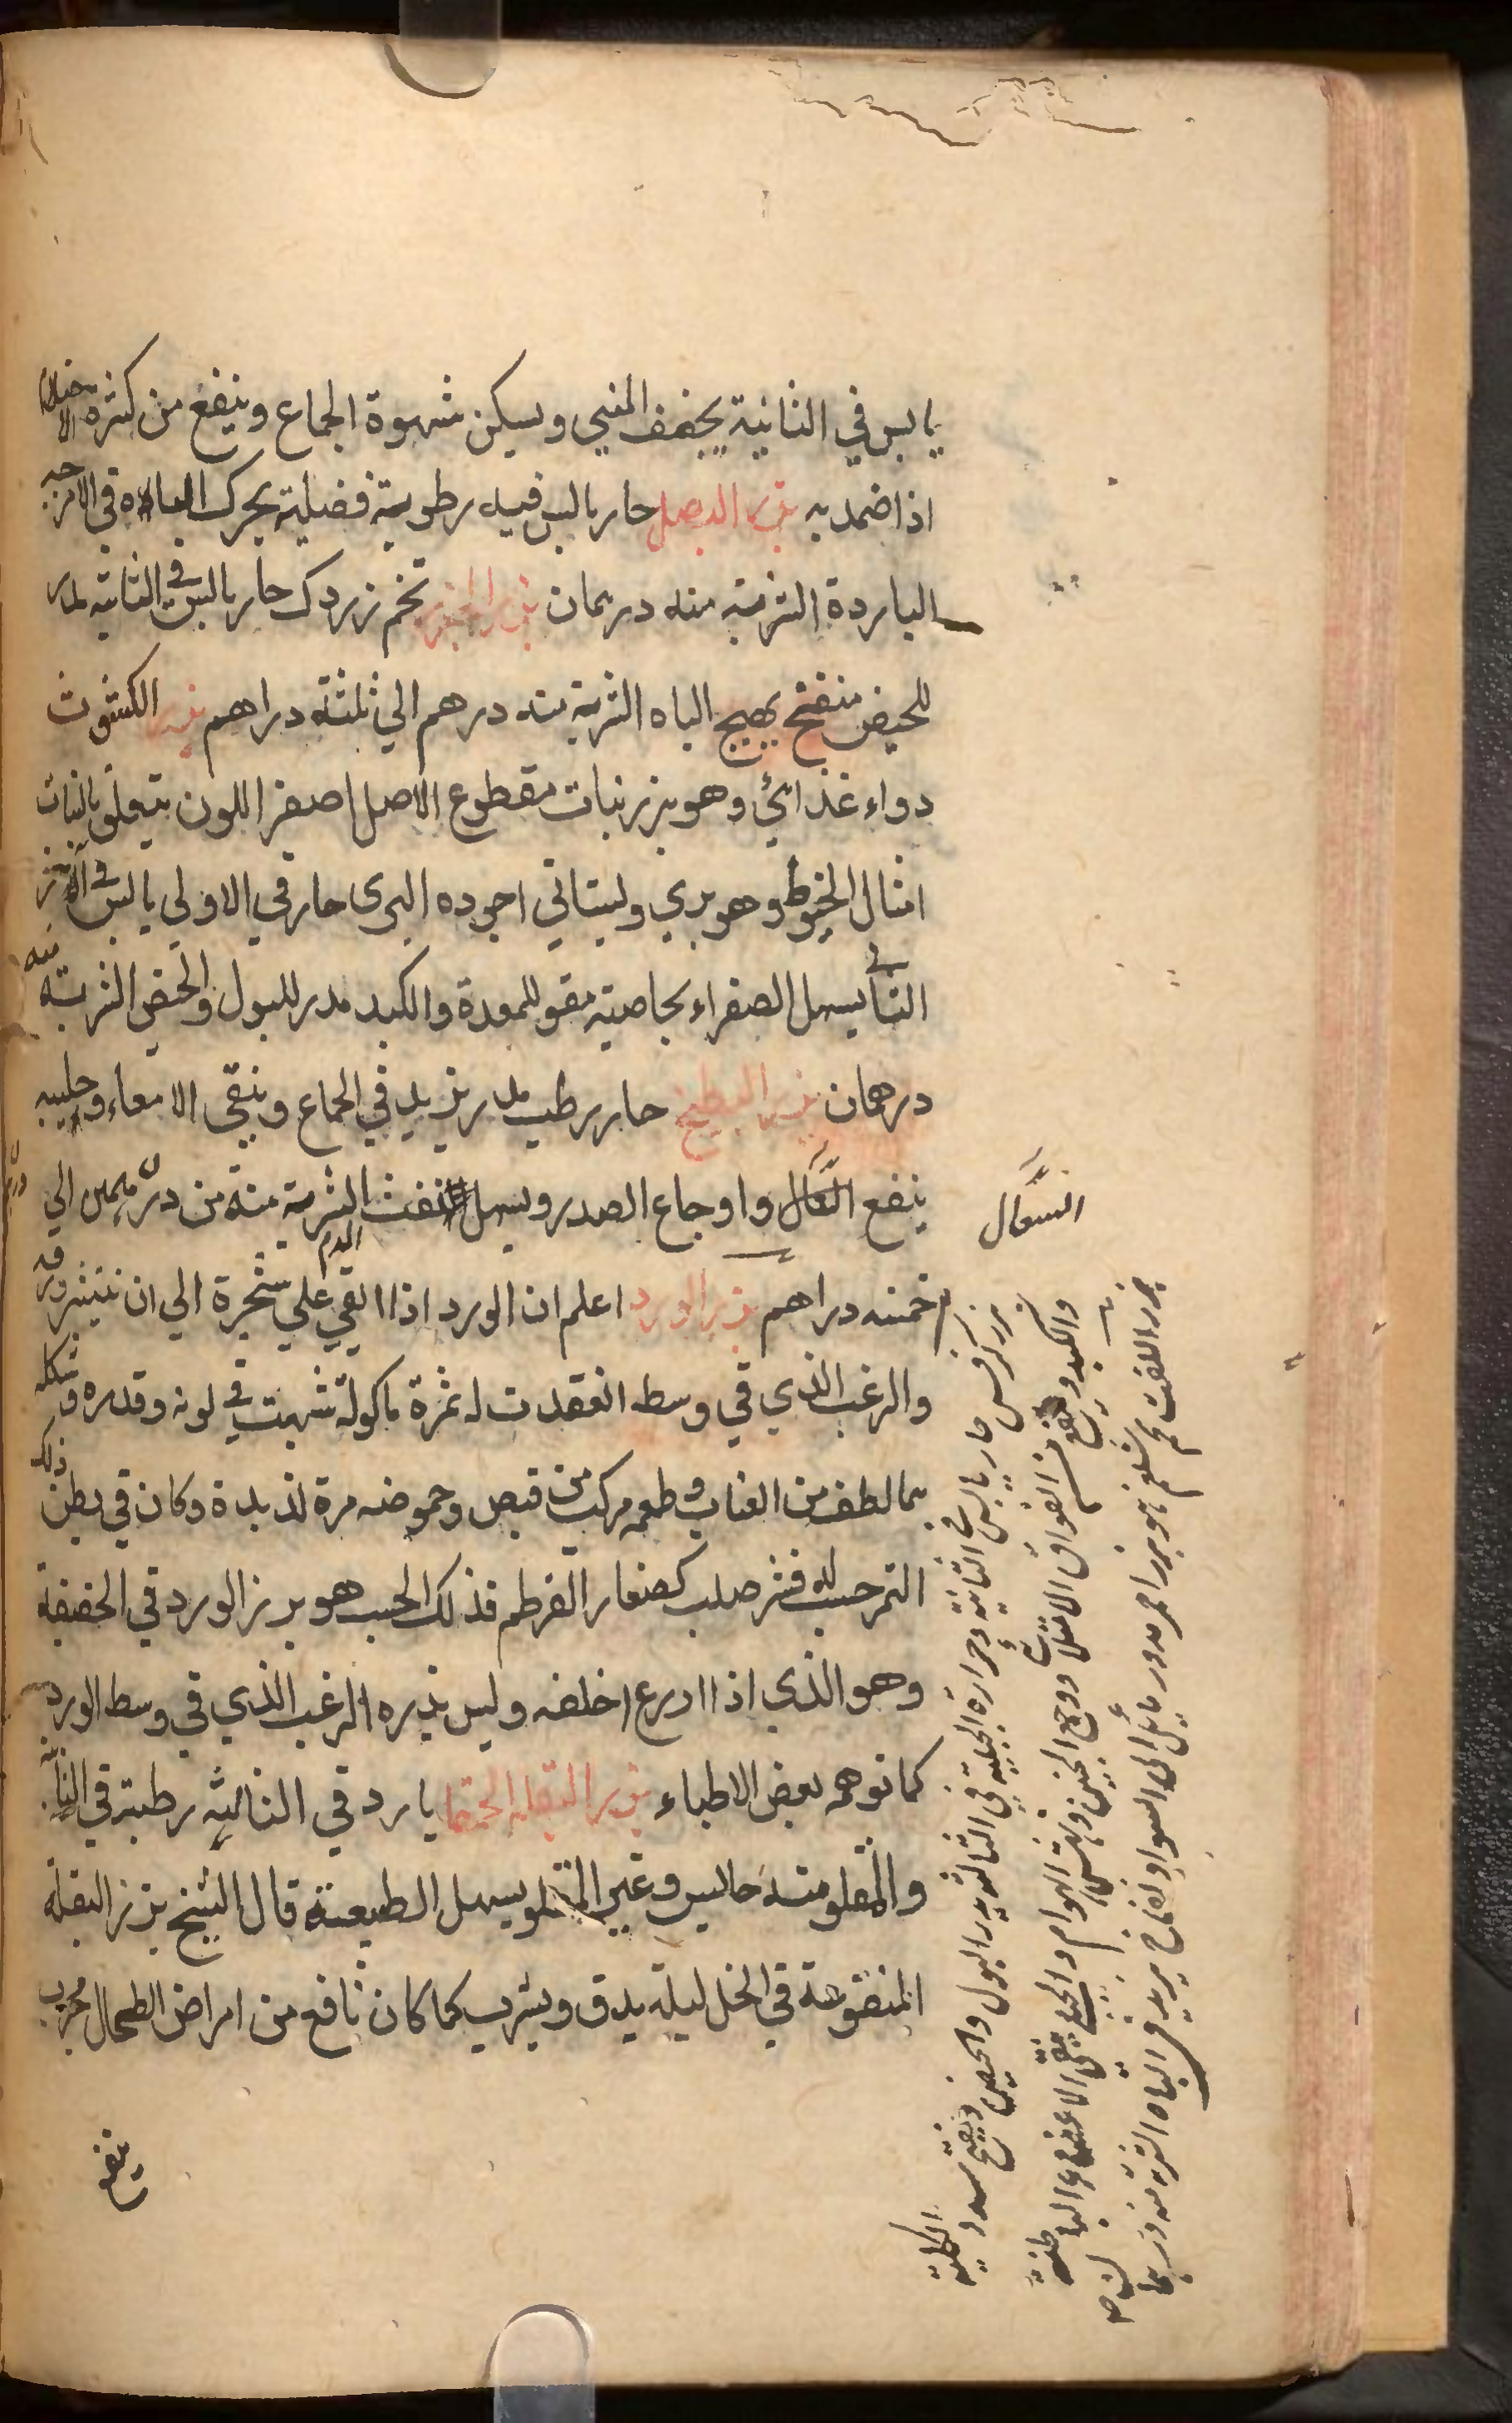 يابس في الثانية يجفف المني ويسكن شهوة الجماع وينفع من كثرة الاحتلام
اذا ضمد به بزر البصل حار يابس فيه رطوبة فضلية يحرك الباه في الامزجه
الباردة الشربة منه درهمان بزر الجزر تخم زردك حار يابس في الثانيه مدر
للحيض منفتح يهيج الباه الشربة منه درهم الي ثلثة دراهم بزر الكشوث
دواء غذائي وهو بزر نبات مقطوع الاصل اصفر اللون يتعلق بالنبات
امثال الخيوط وهو بري وبستاني اجوده البرى حار في الاولي يابس في
الثانية يسهل الصفراء بخاصية مقو للمعدة والكبد مدر للبول والحيض الشربة منه
درهمان بزر البطيخ حار رطب مدر يزيد في الجماع وينقي الامعاء وحليبه
ينفع السعال واوجاع الصدر ويسهل نفث الدم الشربة منه من درهمين الي
خمسه دراهم بزر الورد اعلم ان الورد اذا القي علي شجرة الي ان ينتثر ورقه
والزغب الذي في وسطه انعقدت له ثمرة ماكولة شبهت في لونه وقدره وشكله
بما لطف من العناب وطعمه مركب من قبض وحموضه مرة لذيذة وكان في بطن ذلك
الثمر حب له قشر صلب كصغار القرطم فذلك الحب هو بزر الورد في الحقيقة
وهو الذي اذا ازرع اخلفه وليس بذره الزغب الذي في وسط الورد
كما توهمه بعض الاطباء بزر البقلة الحمقا بارد في الثالثه رطبة في الثانيه
والمقلو منه حابس وغير المقلو يسهل الطبيعة قال الشيخ بزر البقلة
المنقوعة في الخل ليلة يدق ويشرب كما كان نافع من امراض الطحال مجرب
ينفع
السعال
بزر كرفس حار يابس في الثانية وحرارة الجبلية في الثالثه يدر البول والحيض ويفتح سدد الكلية
والكبد وينفع من الفواق الامتلائي ووجع الجنبين ونهش الهوام والجبلي ينقي الاعضاء الباطنة
بزر اللفت تخم شلغم هو بزر احمر مدور مائل الى السواد نفاخ يزيد في الباه الشربة منه درهما